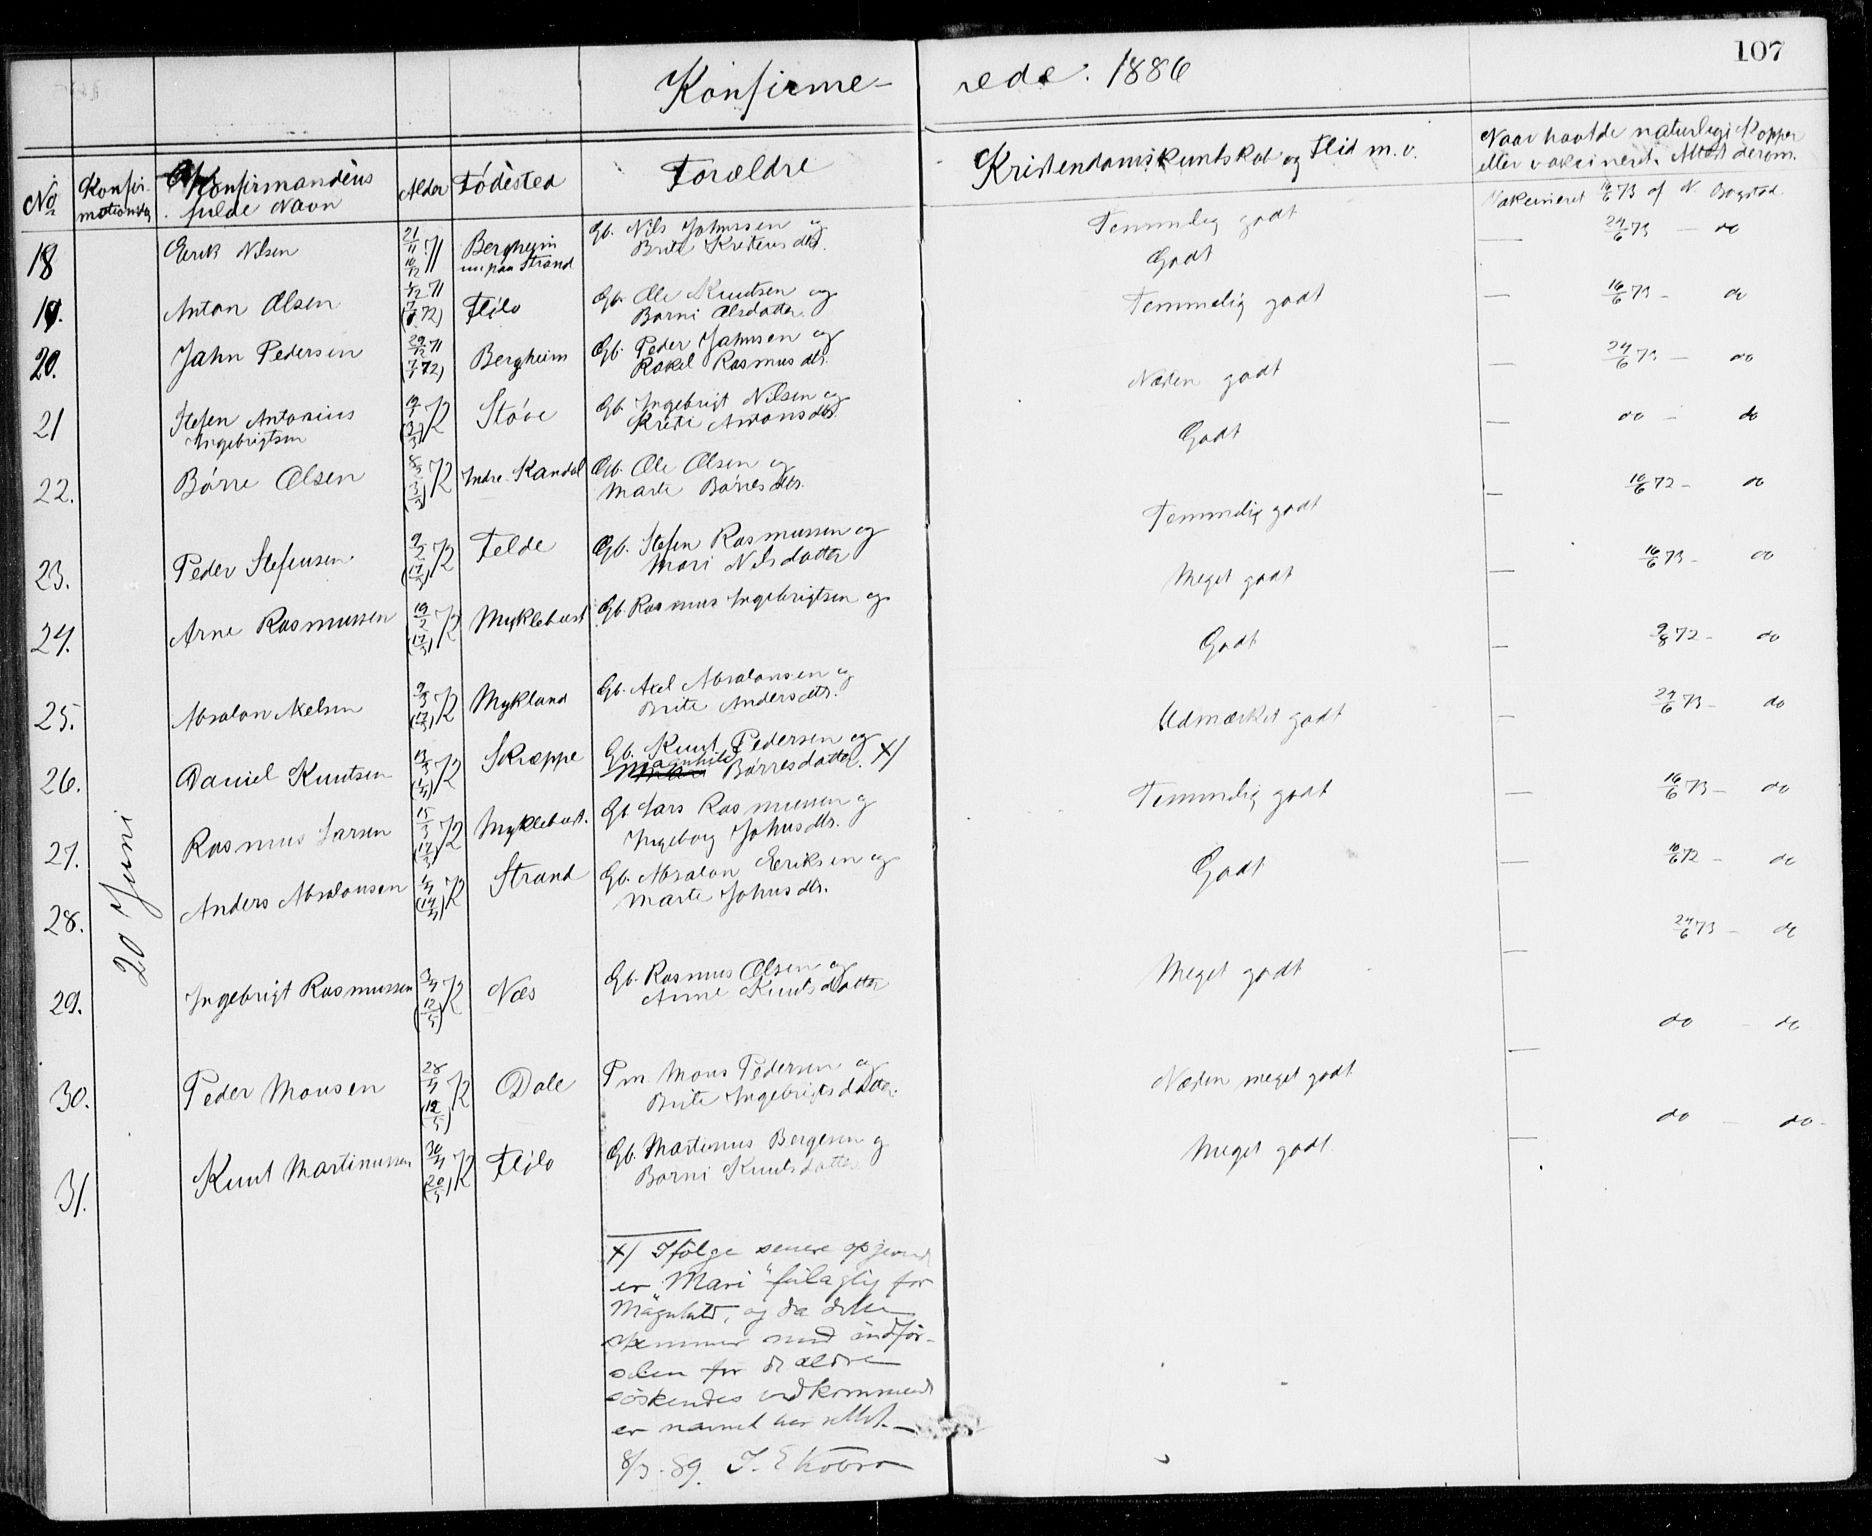 107
Konfirme- rede. 1886
No Konfirmationsdag Konfirmandens fulde Navn Alder Fødested Forældre Kristendomskundskab og Flid m.v. Naar havt de naturlige Kopper eller vakcineret. Attest derom.
18 Erik Nilsen 21/11 71 10/12 Bergheim nu paa Strand Gb. Nils Johnsen og Temmelig godt Vakcineret 16/6 73 af N. Bogstad
Brite Kristensdtr.
19. Anton Olsen 1/12 71 (7/1 72) Flølo Gb. Ole Knutsen og Godt — 24/6 73 — do
Borni Olsdatter.
20. Jahn Pedersen 29/12 71 (7/1 72) Bergheim Gb. Peder Jahnsen og Temmelig godt — 16/6 73 — do
Rakel Rasmusdtr.
21 Stefen Antonius Ingebrigtsen 19/1 72 Støve Gb. Ingebrigt Nilsen og Næsten godt — 24/6 73 — do
Kristi Antonsdtr.
22. Børre Olsen 72 Indre-Kandal Gb. Ole Olsen og Godt — do — do
Marte Børresdtr.
23. Peder Stefensen 9/2 72 (17/3) Felde Gb. Stefen Rasmussen og Temmelig godt — 10/6 72 — do
Mari Nilsdatter
24. Arne Rasmussen 19/2 72 (17/3) Myklebust Gb. Rasmus Ingebrigtsen og Meget godt — 16/6 73 — do
25. Absalon Akelsen 9/3 72 (17/3) Mykland Gb. Akel Absalonsen og Godt — 9/8 72 — do
Brite Andersdtr.
26. Daniel Knutsen 13/3 72 (1/4) Skræppe Gb. Knut Pedersen og Udmærket godt — 24/6 73 — do
Magnhild Børresdatter. X/
27. Rasmus Larsen 15/3 72 (17/3) Myklebust. Gb Lars Rasmussen og Temmelig godt — 16/6 73 — do
Ingeborg Johnsdtr.
28. Anders Absalonsen 1/4 72 (14/4) Strand Gb. Absalon Eriksen og Godt — 10/6 72 — do
Marte Johnsdtr.
20 Juni
29. Ingebrigt Rasmussen 3/4 72 (12/5) Næs Gb. Rasmus Olsen og Meget godt — 24/6 73 — do
Anne Knutsdatter
30. Peder Monsen 28/4 72 (12/5) Dale Pm. Mons Pedersen og Næsten meget godt — do — do
Brite Ingebrigtsdatter.
31. Knut Martinussen 30/4 72 (20/5) Flølo Gb. Martinus Børgesen og Meget godt. — do — do.
Borni Knutsdatter
X/ Ifølge senere opgivende
er "Mari" feilagtig for
Magnhild, og da dette
stemmer med indfør-
selen for de ældre
søskendes vedkommende
er navnet her rettet. —
8/3 - 89. J. E Kobro